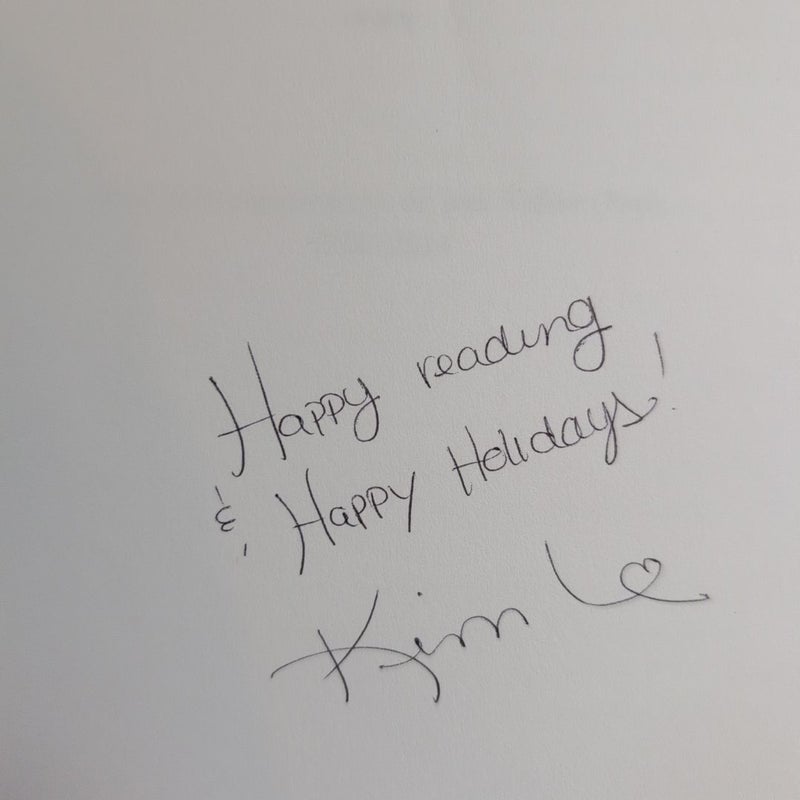 Happy reading
& Happy Holidays!
Kim Le